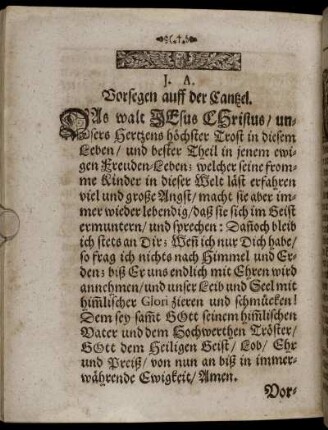 J. A.
Vorsegen auff der Cantzel.
DAs walt JEsus CHristus/ un-
sers Hertzens höchster Trost in diesem
Leben/ und bester Theil in jenem ewi-
gen Freuden-Leben; welcher seine from-
me Kinder in dieser Welt läst erfahren
viel und große Angst/ macht sie aber im-
mer wieder lebendig/ daß sie sich im Geist
ermuntern/ und sprechen: Dañoch bleib
ich stets an Dir; Weñ ich nur Dich habe/
so frag ich nichts nach Himmel und Er-
den; biß Er uns endlich mit Ehren wird
annehmen/ und unser Leib und Seel mit
him̃lischer Glori zieren und schmücken!
Dem sey sam̃t GOtt seinem him̃lischen
Vater und dem Hochwerthen Tröster/
GOtt dem Heiligen Geist/ Lob/ Ehr
und Preiß/ von nun an biß in immer-
währende Ewigkeit/ Amen.
Vor-